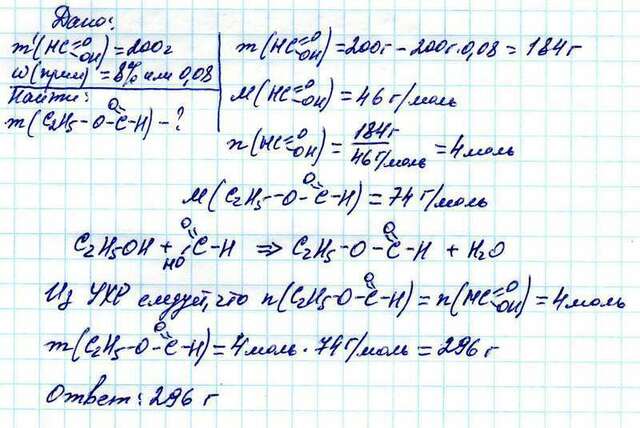 Дано:
m'(HC=O OH) = 200г
ω(прим) = 8% или 0,08
Найти:
m(C2H5-O-C=O-H) - ?
m(HC=O OH) = 200г - 200г·0,08 = 184г
M(HC=O OH) = 46 г/моль
n(HC=O OH) = 184г / 46г/моль = 4моль
M(C2H5-O-C=O-H) = 74 г/моль
C2H5OH + HO C=O-H ⇒ C2H5-O-C=O-H + H2O
Из УХР следует, что n(C2H5-O-C=O-H) = n(HC=O OH) = 4моль
m(C2H5-O-C=O-H) = 4моль · 74г/моль = 296 г
Ответ: 296 г